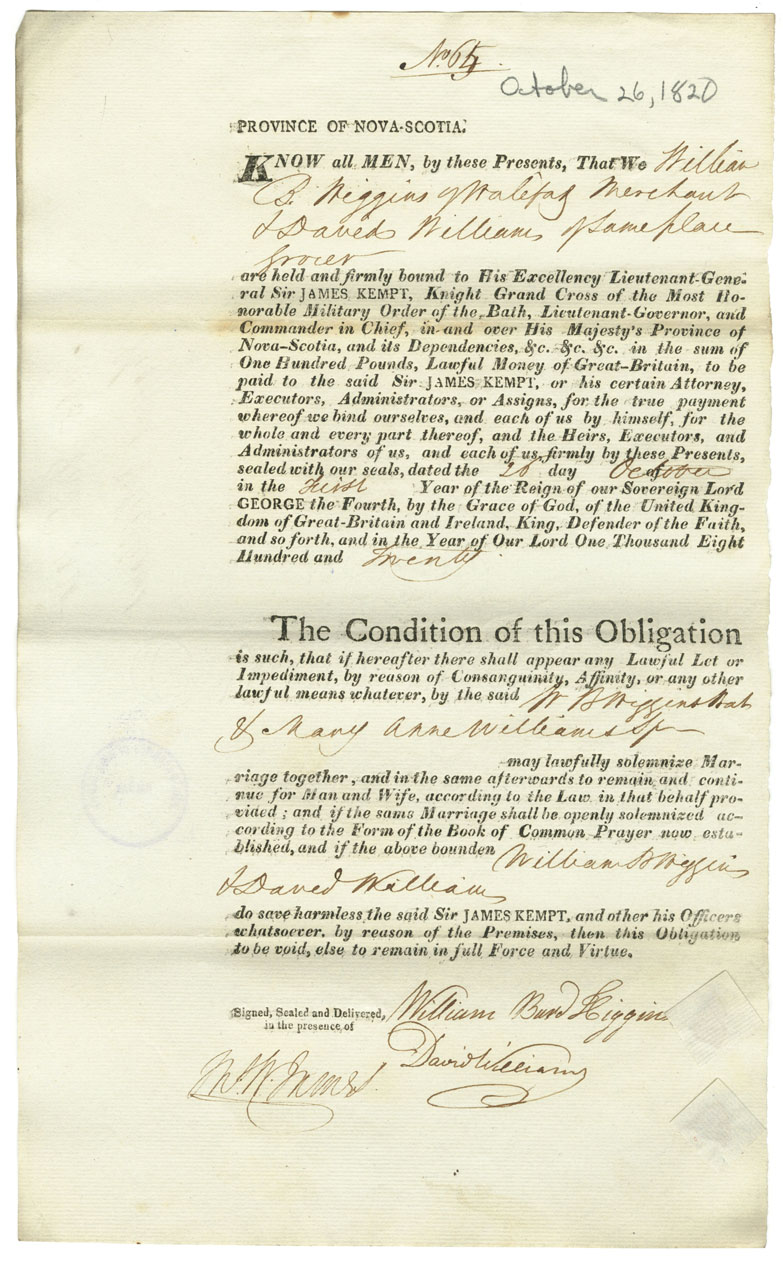 No. 65
October 26, 1820
PROVINCE OF NOVA-SCOTIA.
KNOW all MEN, by these Presents, That We William
B. Higgins of Halifax Merchant
& David Williams of Same place
Grocer
are held and firmly bound to His Excellency Lieutenant-Gene-
ral Sir JAMES KEMPT, Knight Grand Cross of the Most Ho-
norable Military Order of the Bath, Lieutenant-Governor, and
Commander in Chief, in and over His Majesty's Province of
Nova-Scotia, and its Dependencies, &c. &c. &c. in the sum of
One Hundred Pounds, Lawful Money of Great-Britain, to be
paid to the said Sir JAMES KEMPT, or his certain Attorney,
Executors, Administrators, or Assigns, for the true payment
whereof we bind ourselves, and each of us by himself, for the
whole and every part thereof, and the Heirs, Executors, and
Administrators of us, and each of us, firmly by these Presents,
sealed with our seals, dated the 26 day of October
in the First Year of the Reign of our Sovereign Lord
GEORGE the Fourth, by the Grace of God, of the United King-
dom of Great-Britain and Ireland, King, Defender of the Faith,
and so forth, and in the Year of Our Lord One Thousand Eight
Hundred and Twenty.
The Condition of this Obligation
is such, that if hereafter there shall appear any Lawful Let or
Impediment, by reason of Consanguinity, Affinity, or any other
lawful means whatever, by the said W B Higgins Bat
& Mary Anne Williams Sp
may lawfully solemnize Mar-
riage together, and in the same afterwards to remain and conti-
nue for Man and Wife, according to the Law in that behalf pro-
vided; and if the same Marriage shall be openly solemnized ac-
cording to the Form of the Book of Common Prayer now esta-
blished, and if the above bounden William B Higgins
& David Williams
do save harmless the said Sir JAMES KEMPT, and other his Officers
whatsoever, by reason of the Premises, then this Obligation
to be void, else to remain in full Force and Virtue.
Signed, Sealed and Delivered, William Higgins
in the presence of
David Williams
James